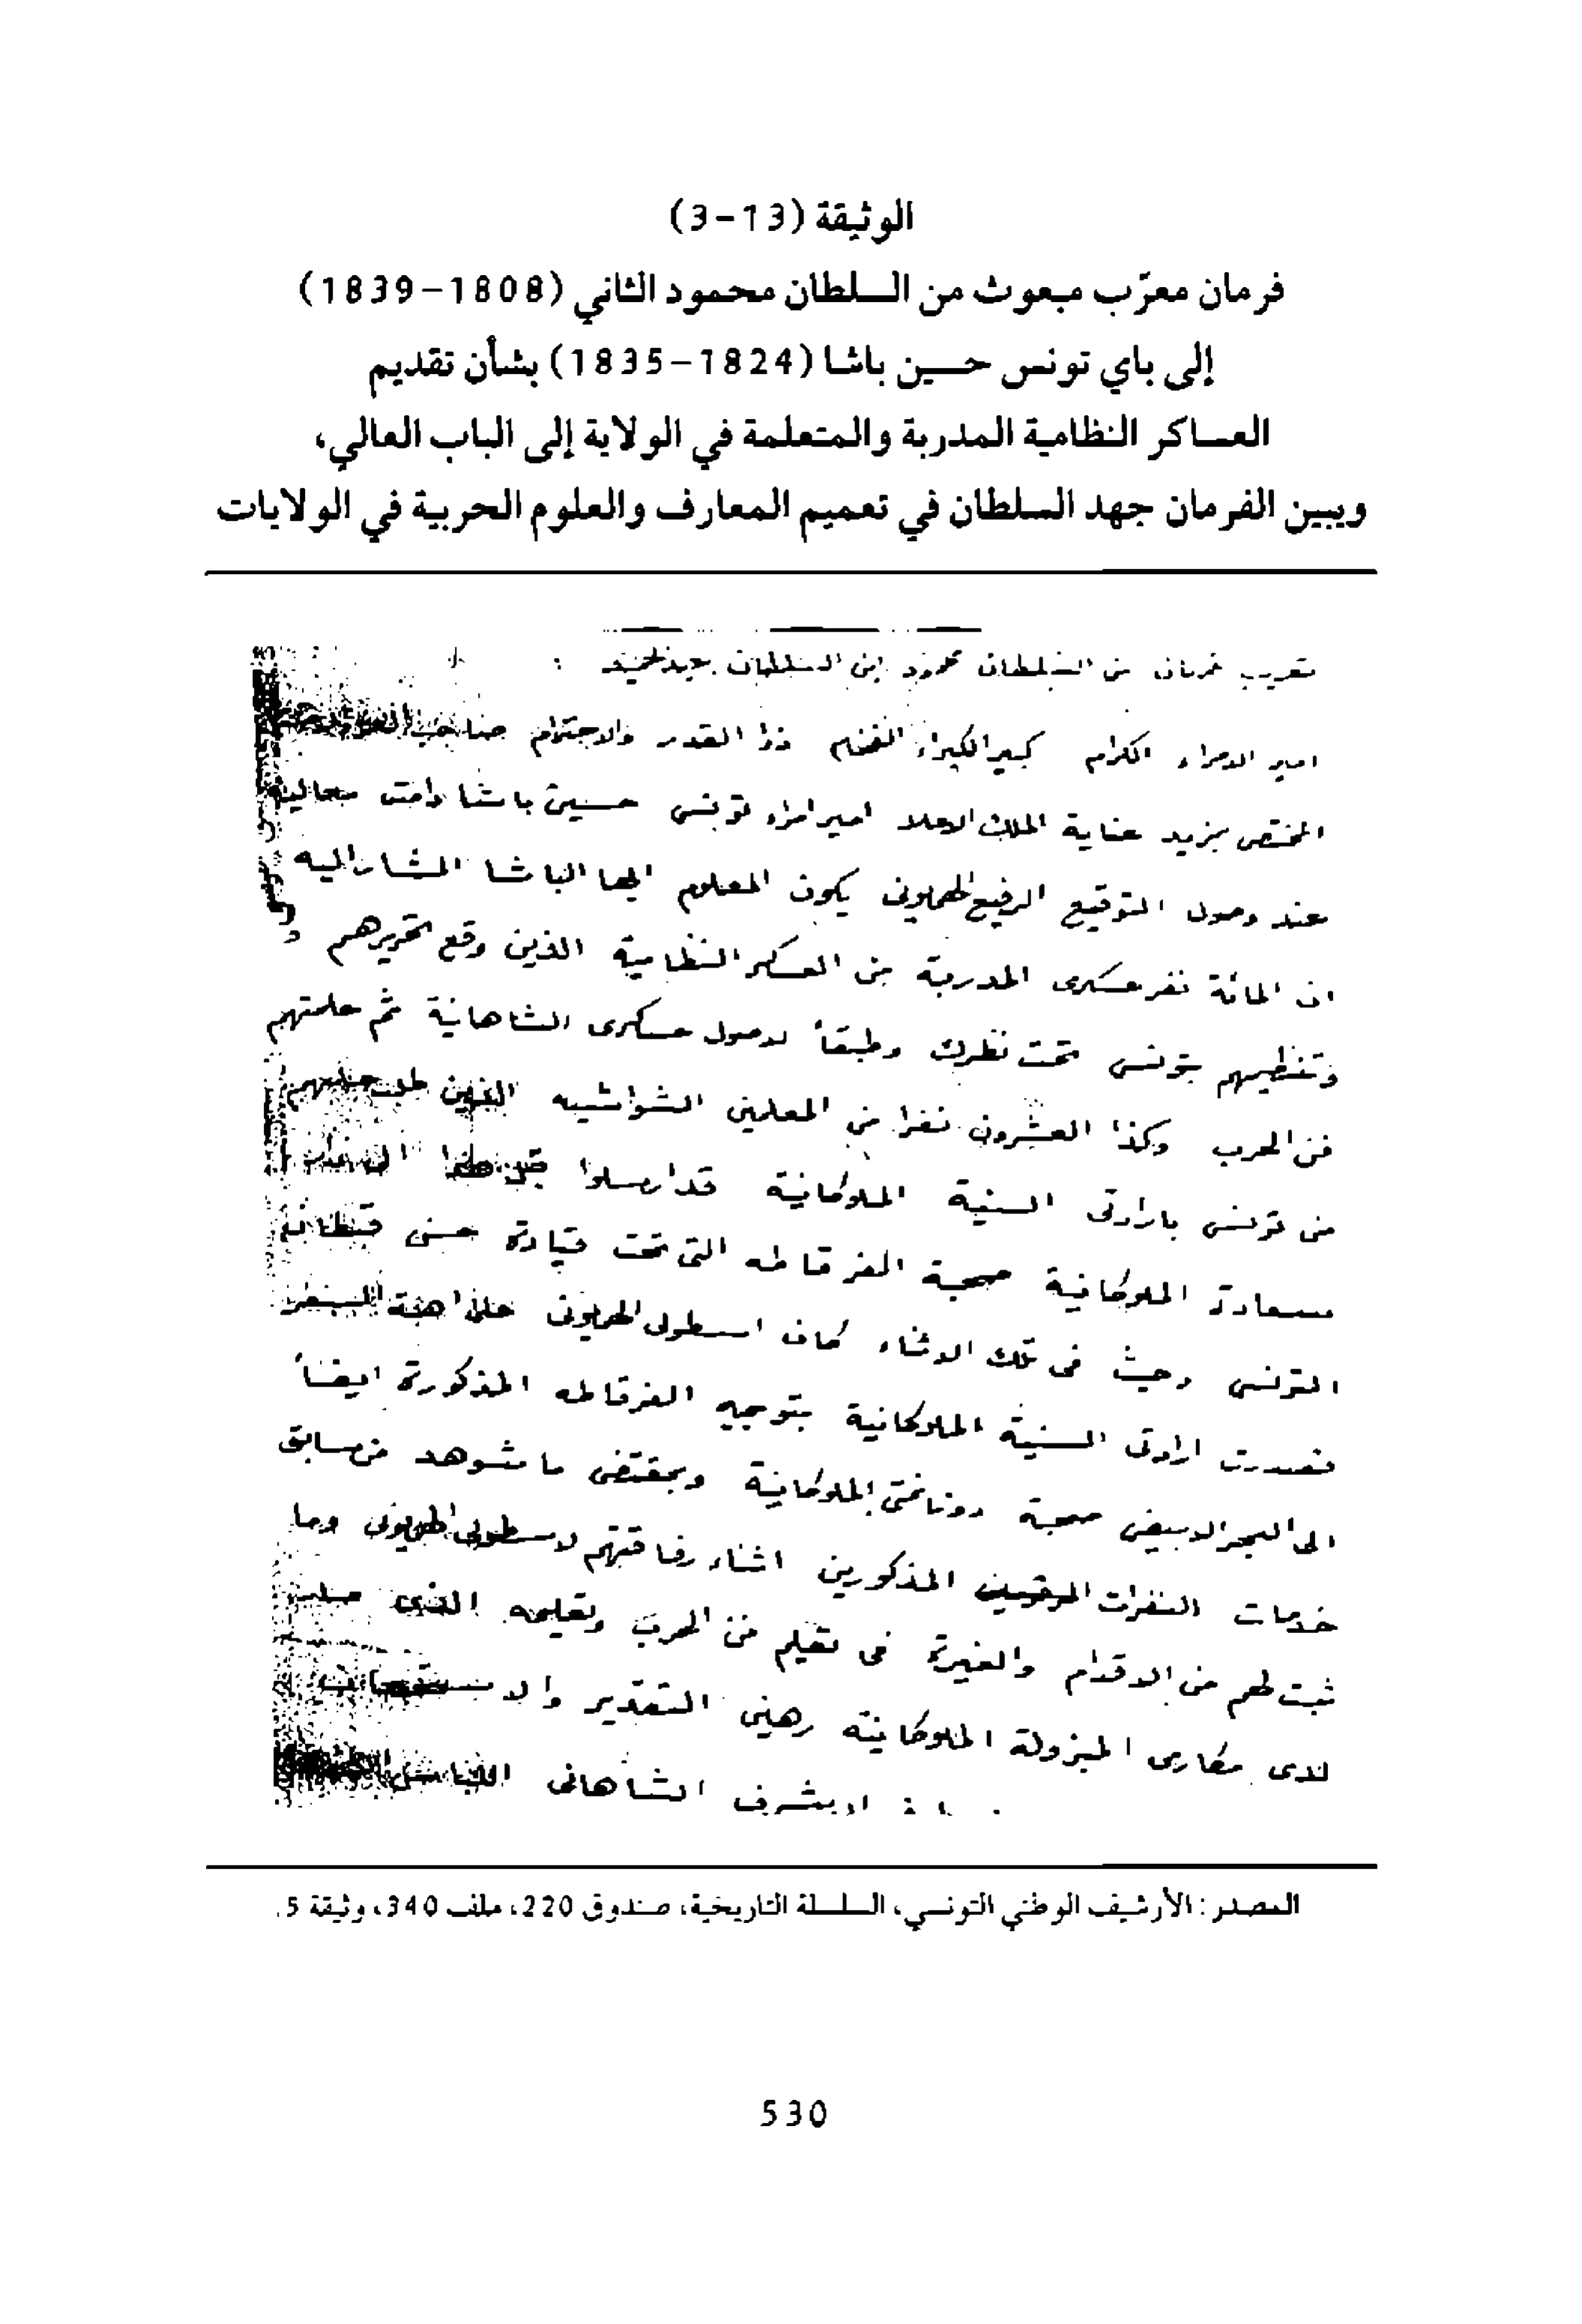 الوثيقة (13-3)
فرمان معرّب مبعوث من السلطان محمود الثاني (1808-1839)
إلى باي تونس حسين باشا (1824-1835) بشأن تقديم
العساكر النظامية المدربة والمتعلمة في الولاية إلى الباب العالي،
ويبين الفرمان جهد السلطان في تعميم المعارف والعلوم الحربية في الولايات
تعريب فرمان من السلطان محمود ابن السلطان عبدالحميد :
امير الامراء الكرام كبير الكبراء الفخام ذوا القدر والاحترام صاحب
المختص بمزيد عناية الملك الاعلا امير امراء تونس حسين باشا دامت معاليه
عند وصول التوقيع الرفيع الهمايونى يكون المعلوم ايها الباشا المشار اليه
ان المائة نفر عسكرى المدربة من العسكر النظامية الذين وقع تحريرهم
وتنظيمهم بتونس تحت نظرك وطبقاً لاصول عسكرى الشاهانية ثم علمتهم
فن الحرب وكذا العشرون نفرا من المعلمين الشواشيه الذين
من تونس بارادتى السنية الملوكانية قد ارسلوا قبل هذا
سعادة الملوكانية صحبة الفرقاطه التى تحت قيادة حسن قبطان
التونسى وحيث فى تلك الاثناء كان اسطولى الهمايونى على اهبة السفر
فصدرت ارادتى السنية الملوكانية بتوجيه الفرقاطه المذكورة ايضاً
الى البحر الابيض صحبة دوننمتى الملوكانية وبمقتضى ما شوهد من سابق
خدمات النفرات المرقومين المذكورين اثناء رفاقتهم لاسطولى الهمايونى وما
ثبت لهم من الاقدام والغيرة فى تعليم فن الحرب وتعليمه الذى
لدى مكارمى المبزولة الملوكانية رهين التقدير والاستحسان
الشاهانى
المصدر: الأرشيف الوطني التونسي، السلسلة التاريخية، صندوق 220، ملف 340، وثيقة 5.
530